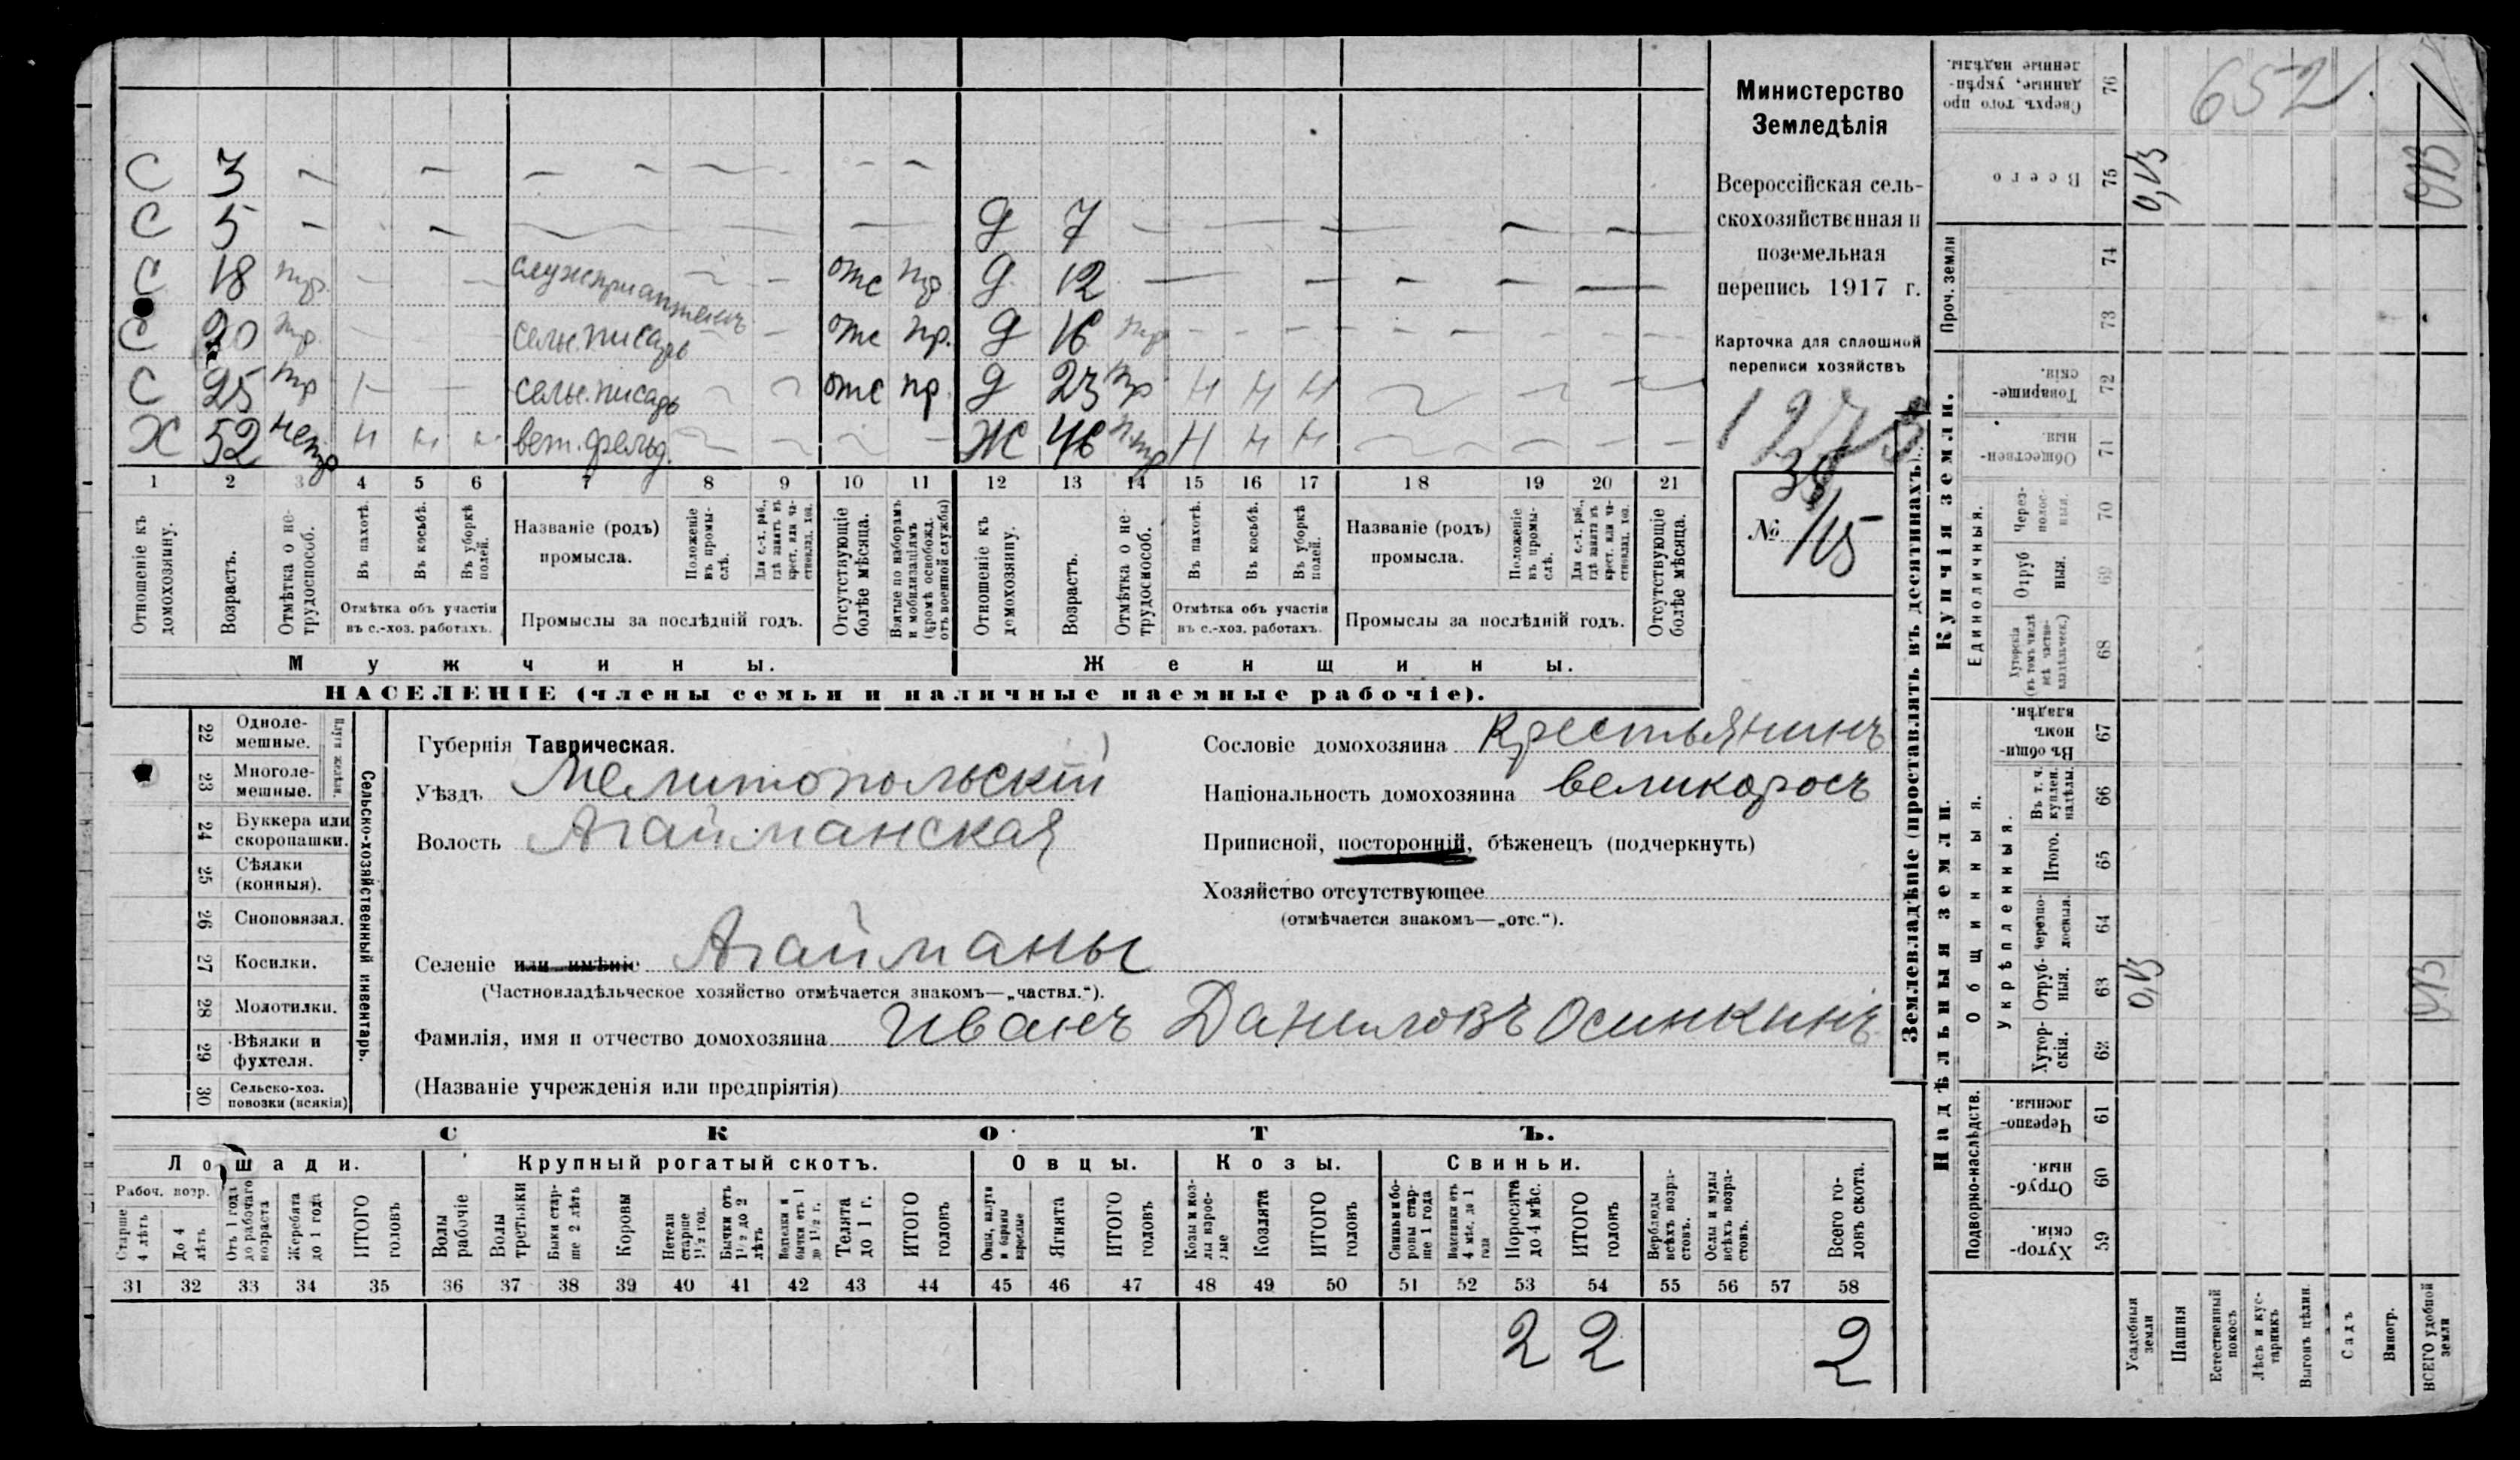 Министерство
Земледѣлія
Всероссійская сель-
скохозяйственная и
поземельная
перепись 1917 г.
Карточка для сплошной
переписи хозяйствъ
№ 39/15
652
С 3 — — — — — — — —
С 5 — — — — — — Д 7 — — — — — —
С 18 тр. — — служ. отс пр Д 12 — — — — — —
С 20 тр. — — сельс. писарь — — отс пр. Д 16 тр — — — — — — —
С 25 тр — — сельс. писарь отс пр. Д 23 тр Н Н Н
Х 52 нетр Н Н Н вет. фельд. Ж 46 Н Н Н
1 2 3 4 5 6 7 8 9 10 11 12 13 14 15 16 17 18 19 20 21
Отношеніе къ домохозяину.
Возрастъ.
Отмѣтка о не-трудоспособ.
Въ пахотѣ.
Въ косьбѣ.
Въ уборкѣ полей.
Отмѣтка объ участіи
въ с.-хоз. работахъ.
Названіе (родъ)
промысла.
Положеніе въ промы-слѣ.
Для с.-х. раб., гдѣ занятъ въ крест. или ча-стновлад. хоз.
Промыслы за послѣдній годъ.
Отсутствующіе болѣе мѣсяца.
Взятые по наборамъ и мобилизаціямъ (кромѣ освобожд. отъ военной службы)
Отношеніе къ домохозяину.
Возрастъ.
Отмѣтка о не-трудоспособ.
Въ пахотѣ.
Въ косьбѣ.
Въ уборкѣ полей.
Отмѣтка объ участіи
въ с.-хоз. работахъ.
Названіе (родъ)
промысла.
Положеніе въ промы-слѣ.
Для с.-х. раб., гдѣ занята въ крест. или ча-стновлад. хоз.
Промыслы за послѣдній годъ.
Отсутствующіе болѣе мѣсяца.
Мужчины. Женщины.
НАСЕЛЕНІЕ (члены семьи и наличные наемные рабочіе).
22 Одноле-мешные.
23 Многоле-мешные.
Плуги желѣзн.
24 Буккера или скоропашки.
25 Сѣялки (конныя).
26 Сноповязал.
27 Косилки.
28 Молотилки.
29 Вѣялки и фухтеля.
30 Сельско-хоз. повозки (всякія)
Сельско-хозяйственный инвентарь.
Губернія Таврическая.
Уѣздъ Мелитопольскій
Волость Агайманская
Селеніе или имѣніе Агайманы
(Частновладѣльческое хозяйство отмѣчается знакомъ—„частвл.“).
Фамилія, имя и отчество домохозяина Иванъ Даниловъ Осинкинъ
(Названіе учрежденія или предпріятія)
Сословіе домохозяина Крестьянинъ
Національность домохозяина великоросъ
Приписной, посторонній, бѣженецъ (подчеркнуть)
Хозяйство отсутствующее
(отмѣчается знакомъ—„отс.“).
СКОТЪ.
Лошади. Крупный рогатый скотъ. Овцы. Козы. Свиньи.
Рабоч. возр.
Старше 4 лѣтъ
До 4 лѣтъ
Отъ 1 года до рабочаго возраста
Жеребята до 1 года
ИТОГО головъ
Волы рабочіе
Волы третьяки
Быки стар-ше 2 лѣтъ
Коровы
Нетели старше 1½ год.
Бычки отъ 1½ до 2 лѣтъ
Телята до 1 г.
ИТОГО головъ
Овцы, валухи и бараны взрослые
Ягнята
ИТОГО головъ
Козы и коз-лы взрос-лые
Козлята
ИТОГО головъ
Свиньи и бо-ровы стар-ше 1 года
Подсвинки отъ 4 мѣс. до 1 года
Поросята до 4 мѣс.
ИТОГО головъ
Верблюды всѣхъ возра-стовъ.
Ослы и мулы всѣхъ возра-стовъ.
Всего го-ловъ скота.
31 32 33 34 35 36 37 38 39 40 41 42 43 44 45 46 47 48 49 50 51 52 53 54 55 56 57 58
2 2 2
Землевладѣніе (проставлять въ десятинахъ).
Купчія земли.
Надѣльныя земли.
Сверхъ того про-данные, укрѣп-ленные надѣлы. 76
Всего 75 0,13 0,13
Проч. земли 74 73
Товарище-скія. 72
Обществен-ныя. 71
Единоличныя.
Через-полос-ныя. 70
Отруб-ныя. 69
Хуторскія (въ томъ числѣ всѣ частно-владѣльческ.) 68
Общинныя.
Въ общи-номъ владѣн. 67
Укрѣпленныя.
Въ т. ч. куплен. надѣлы. 66
Итого. 65
Черезпо-лосныя. 64
Отруб-ныя. 63 0,13 0,13
Хутор-скія. 62
Подворно-наслѣдств.
Черезпо-лосныя. 61
Отруб-ныя. 60
Хутор-скія. 59
Усадебныя земли
Пашня
Естественный покосъ
Лѣсъ и кус-тарникъ
Выгонъ цѣлин.
Садъ
Виногр.
ВСЕГО удобной земли